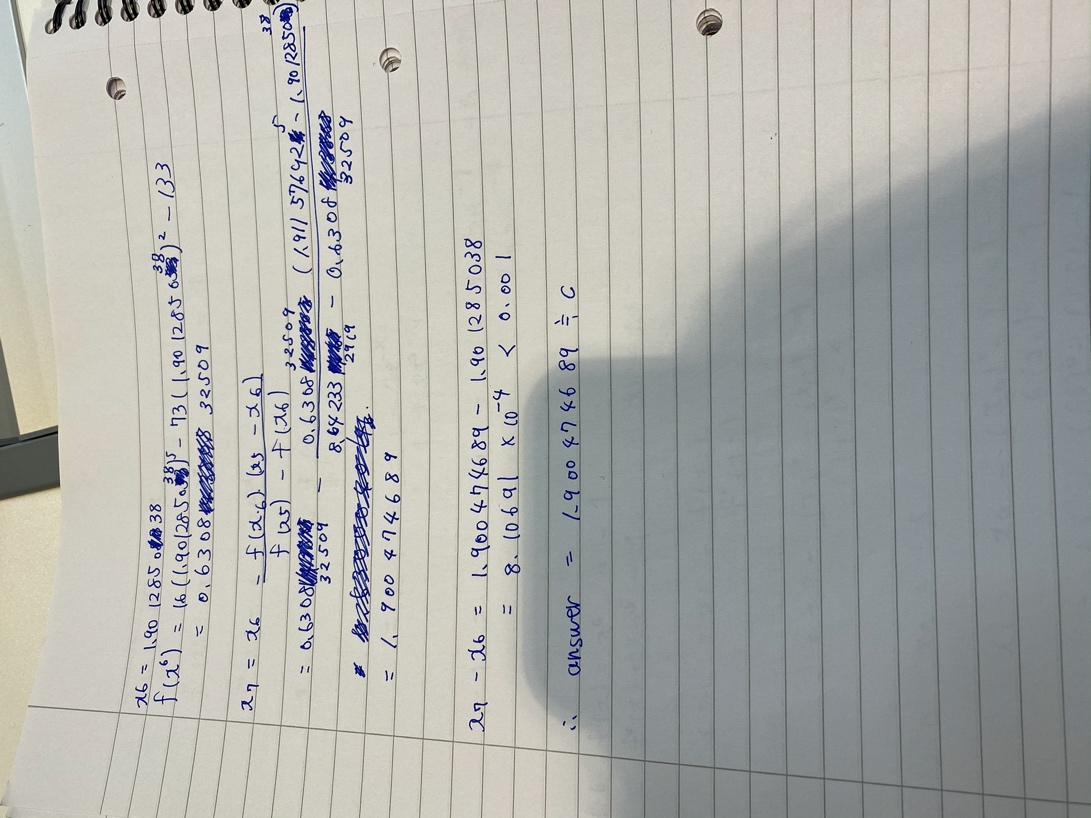 x6 = 1.901285038
f(x6) = 16(1.901285038)5 - 73(1.901285038)2 - 133
= 0.630832509
x7 = x6 - f(x6)(x5 - x6)
f(x5) - f(x6)
= 0.630832509 - 0.630832509 (1.911576925 - 1.901285038)
8.642332969 - 0.630832509
= 1.900474689
x7 - x6 = 1.900474689 - 1.901285038
= 8.10691 × 10-4 < 0.001
∴ answer = 1.900474689 ≑ C